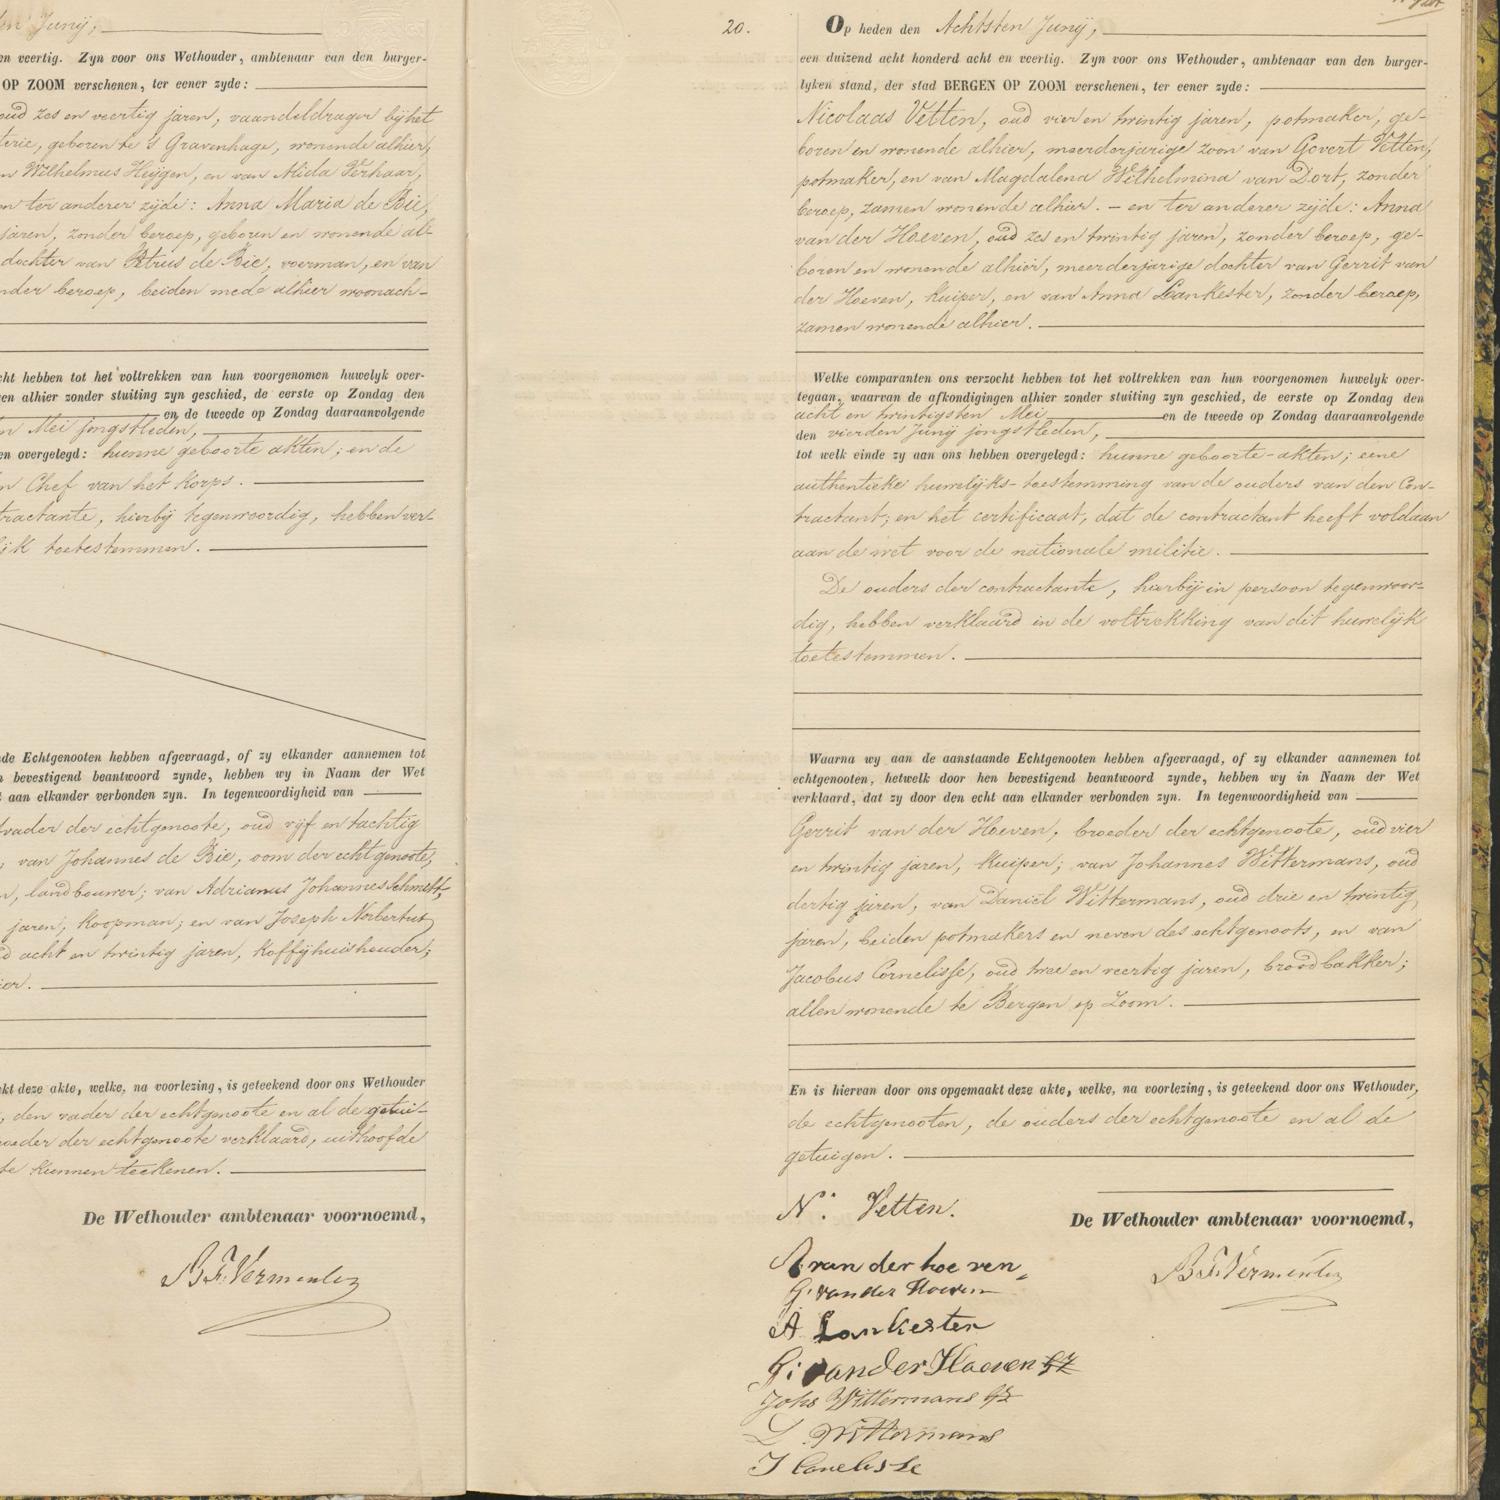 en Junij,
n veertig. Zyn voor ons Wethouder, ambtenaar van den burger-
OP ZOOM verschenen, ter eener zyde:
oud zes en veertig jaren, vaandeldrager bij het
terie, geboren te 's Gravenhage, wonende alhier,
n Wilhelmus Huijgen, en van Alida Verhaar,
n ter anderer zijde: Anna Maria de Bie,
jaren, zonder beroep, geboren en wonende al-
dochter van Petrus de Bie, voerman, en van
nder beroep, beiden mede alhier woonach-
cht hebben tot het voltrekken van hun voorgenomen huwelyk over-
en alhier zonder stuiting zyn geschied, de eerste op Zondag den
en de tweede op Zondag daaraanvolgende
n Mei jongstleden,
en overgelegd: hunne geboorte akten; en de
n Chef van het Korps.
tractante, hierbij tegenwoordig, hebben ver-
ijk toetestemmen.
de Echtgenooten hebben afgevraagd, of zy elkander aannemen tot
n bevestigend beantwoord zynde, hebben wy in Naam der Wet
t aan elkander verbonden zyn. In tegenwoordigheid van
tvader der echtgenoote, oud vijf en tachtig
, van Johannes de Bie, oom der echtgenoote,
n, landbouwer; van Adrianus Johannes Schmelt,
jaren, koopman; en van Joseph Norbertus
d acht en twintig jaren, koffijhuishouder;
er.
kt deze akte, welke, na voorlezing, is geteekend door ons Wethouder
, den vader der echtgenoote en al de getui-
oeder der echtgenoote verklaard, uithoofde
te kunnen teekenen.
De Wethouder ambtenaar voornoemd,
B.F. Vermeulen
20.
Op heden den Achtsten Junij,
een duizend acht honderd acht en veertig. Zyn voor ons Wethouder, ambtenaar van den burger-
lyken stand, der stad BERGEN OP ZOOM verschenen, ter eener zyde:
Nicolaas Vetten, oud vier en twintig jaren, potmaker, ge-
boren en wonende alhier, meerderjarige zoon van Govert Vetten,
potmaker, en van Magdalena Wilhelmina van Dort, zonder
beroep, zamen wonende alhier. – en ter anderer zijde: Anna
van der Hoeven, oud zes en twintig jaren, zonder beroep, ge-
boren en wonende alhier, meerderjarige dochter van Gerrit van
der Hoeven, kuiper, en van Anna Lankester, zonder beroep,
zamen wonende alhier.
Welke comparanten ons verzocht hebben tot het voltrekken van hun voorgenomen huwelyk over-
tegaan, waarvan de afkondigingen alhier zonder stuiting zyn geschied, de eerste op Zondag den
acht en twintigsten Mei en de tweede op Zondag daaraanvolgende
den vierden Junij jongstleden,
tot welk einde zy aan ons hebben overgelegd: hunne geboorte-akten; eene
authentieke huwelijks-toestemming van de ouders van den Con-
tractant; en het certificaat, dat de contractant heeft voldaan
aan de wet voor de nationale militie.
De ouders der contractante, hierbij in persoon tegenwoor-
dig, hebben verklaard in de voltrekking van dit huwelijk
toetestemmen.
Waarna wy aan de aanstaande Echtgenooten hebben afgevraagd, of zy elkander aannemen tot
echtgenooten, hetwelk door hen bevestigend beantwoord zynde, hebben wy in Naam der Wet
verklaard, dat zy door den echt aan elkander verbonden zyn. In tegenwoordigheid van
Gerrit van der Hoeven, broeder der echtgenoote, oud vier
en twintig jaren, kuiper; van Johannes Wittermans, oud
dertig jaren, van Daniël Wittermans, oud drie en twintig
jaren, beiden potmakers en neven des echtgenoots, en van
Jacobus Cornelisse, oud twee en veertig jaren, broodbakker;
allen wonende te Bergen op Zoom.
En is hiervan door ons opgemaakt deze akte, welke, na voorlezing, is geteekend door ons Wethouder,
de echtgenooten, de ouders der echtgenoote en al de
getuigen.
N. Vetten.
De Wethouder ambtenaar voornoemd,
A van der hoeven
B.F. Vermeulen
G. van der Hoeven
A Lankester
G: van der Hoeven Gz
Johs Wittermans Gz
D. Wittermans
J Cornelisse